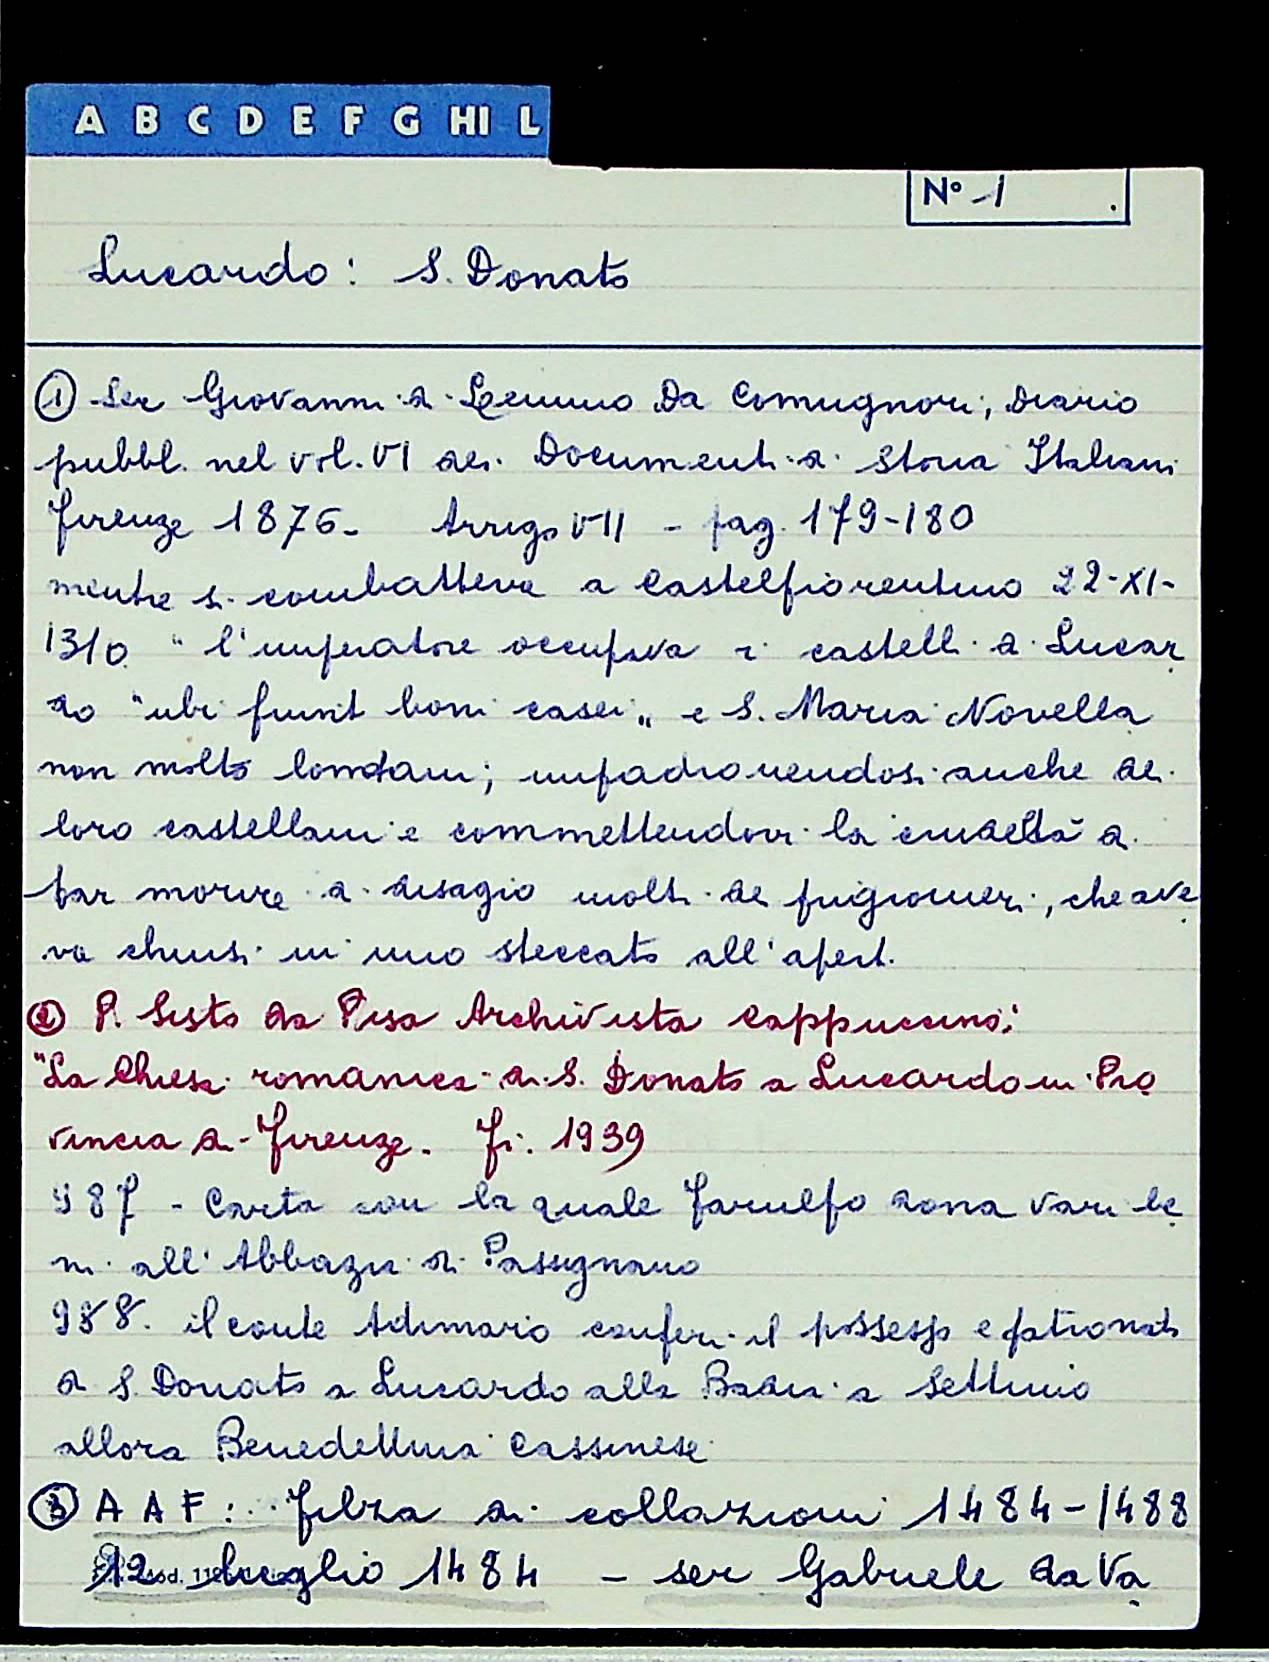 A B C D E F G HI L
N° 1
Lucardo: S. Donato
① Ser Giovanni di Lemmo Da Comugnori, Diario
pubbl. nel vol. VI dei Documenti di Storia Italiani
Firenze 1876- Arrigo VII - pag. 179-180
mentre si combatteva a Castelfiorentino 22-XI-
1310 "l'imperatore occupava i castelli di Lucar
do "ubi fiunt boni casei„ e S. Maria Novella
non molto lontani; impadronendosi anche dei
loro castellani e commettendovi la crudeltà di
far morire di disagio molti dei prigionieri, che ave
va chiusi in uno steccato all'apert.
② P. Sisto da Pisa Archivista cappuccino:
"La Chiesa romanica di S. Donato a Lucardo in Pro
vincia di Firenze. Fi. 1939
987 - Carta con la quale Farulfo dona vari be
ni all'Abbazia di Passignano
988. il conte Adimario conferì il possesso e patronato
di S. Donato a Lucardo alla Badia a Settimo
allora Benedettina Cassinese
③ A A F: Filza di collazioni 1484-1488
12 luglio 1484 - ser Gabriele da Va